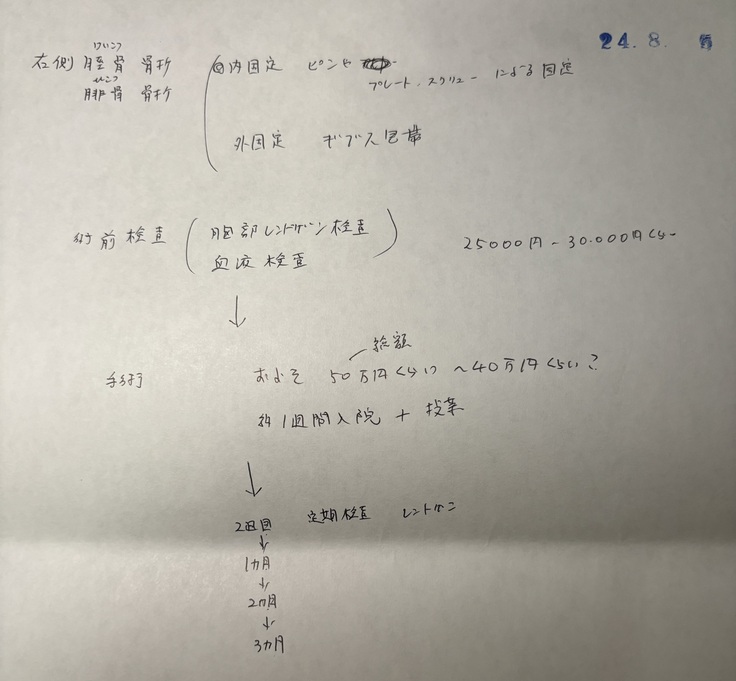 24. 8.
けいこつ
右側 脛骨 骨折
ひこつ
腓骨 骨折
内固定 ピンや
プレート、スクリューによる固定
外固定 ギブス包帯
術前検査
胸部レントゲン検査
血液検査
25000円~30.000円くらい
↓
総額
手術 およそ 50万円くらい ~40万円くらい?
約1週間入院 + 投薬
↓
2週間 定期検査 レントゲン
↓
1ヵ月
↓
2ヵ月
↓
3ヵ月